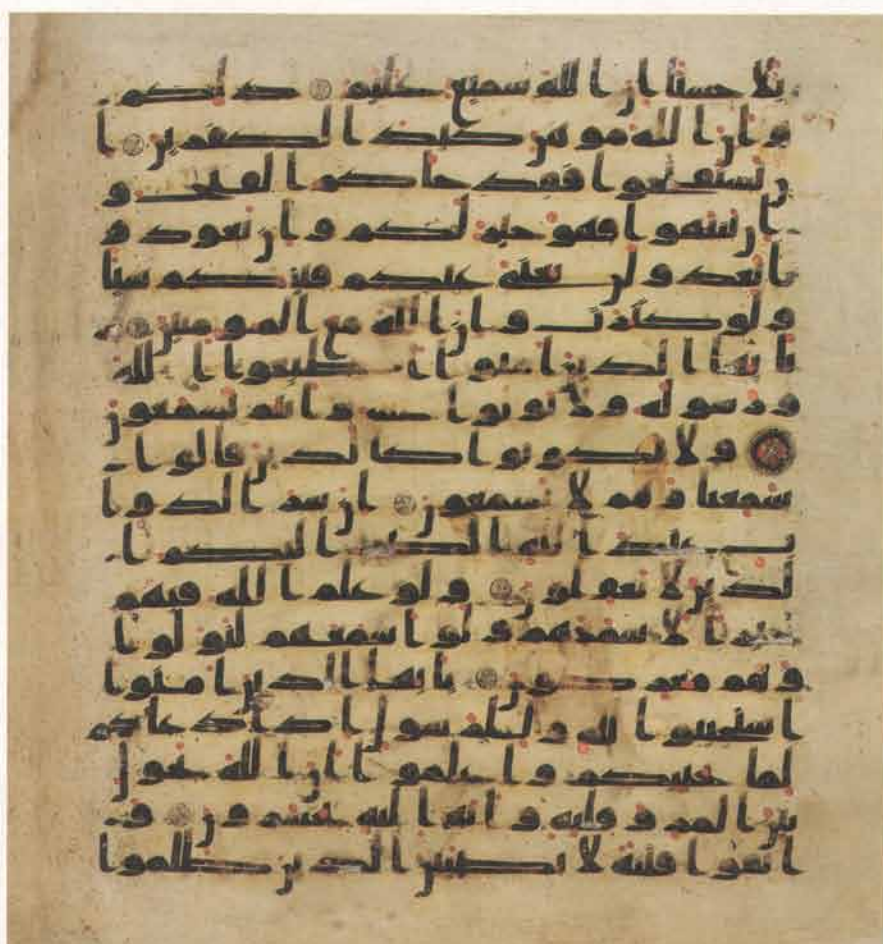 بلا حسنا ان الله سميع عليم ذلكم
وان الله موهن كيد الكفرين ا
ن تستفتحوا فقد جاكم الفتح و
ان تنتهوا فهو خير لكم وان تعودو
ا نعد ولن تغني عنكم فيتكم شيا
ولو كثرت وان الله مع المومنين
يايها الذين امنوا اطيعوا الله
ورسوله ولا تولوا عنه وانتم تسمعون
ولا تكونوا كالذين قالوا
سمعنا وهم لا يسمعون ان شر الدوا
ب عند الله الصم البكم ا
لذين لا يعقلون ولو علم الله فيهم
خيرا لاسمعهم ولو اسمعهم لتولوا
وهم معرضون يايها الذين امنوا
استجيبوا لله وللرسول اذا دعاكم
لما يحييكم واعلموا ان الله يحول
بين المر وقلبه وانه اليه تحشرون و
اتقوا فتنة لا تصيبن الذين ظلموا